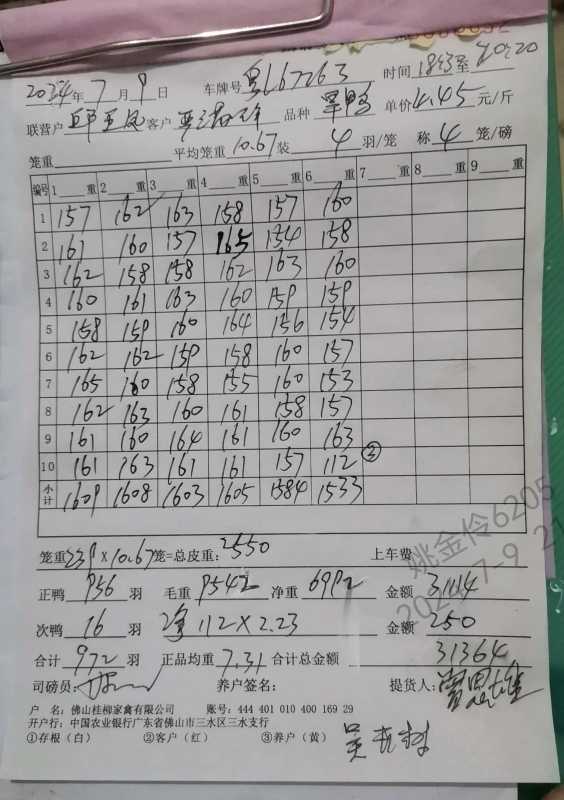 2024年7月9日 车牌号 粤L67263 时间 1843至 20:20
联营户 客户 品种 单鸭 单价 4.45 元/斤
笼重 平均笼重 10.67 装 4 羽/笼 称 4 笼/磅
编号 1 重 2 重 3 重 4 重 5 重 6 重 7 重 8 重 9 重
1 157 162 163 158 157 160
2 161 160 157 165 154 158
3 162 158 158 162 163 160
4 160 161 163 160 159 159
5 158 159 160 164 156 154
6 162 162 159 158 160 157
7 165 160 158 155 160 153
8 162 163 160 161 158 157
9 161 160 164 161 160 163
10 161 163 161 161 157 112 ③
小计 1609 1608 1603 1605 1584 1533
笼重 239 × 10.67 笼=总皮重: 2550 上车费
正鸭 956 羽 毛重 9542 净重 6992 金额 31114
次鸭 16 羽 112×2.23 金额 250
合计 972 羽 正品均重 7.31 合计总金额 31364
司磅员: 养户签名: 提货人:
户 名: 佛山桂柳家禽有限公司 账号: 444 401 010 400 169 29
开户行: 中国农业银行广东省佛山市三水区三水支行
①存根（白） ②客户（红） ③养户（黄）
姚金伶6205